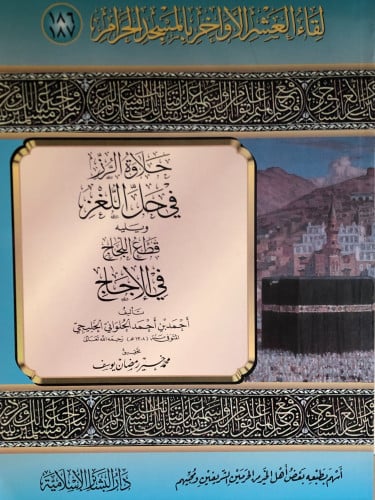 لقاء العشر الأواخر بالمسجد الحرام
١٨٦
١٨٧
حلاوة الرز
في حل اللغز
ويليه
قطاع اللجاج
في الأجاج
تأليف
أحمد بن أحمد الحلواني الخليجي
المتوفى سنة (١٣٠٨ هـ) رحمه الله تعالى
تحقيق
محمد خير رمضان يوسف
أسهم بطبعه بعض أهل الخير من الحرمين الشريفين ومحبيهم
دار البشائر الإسلامية